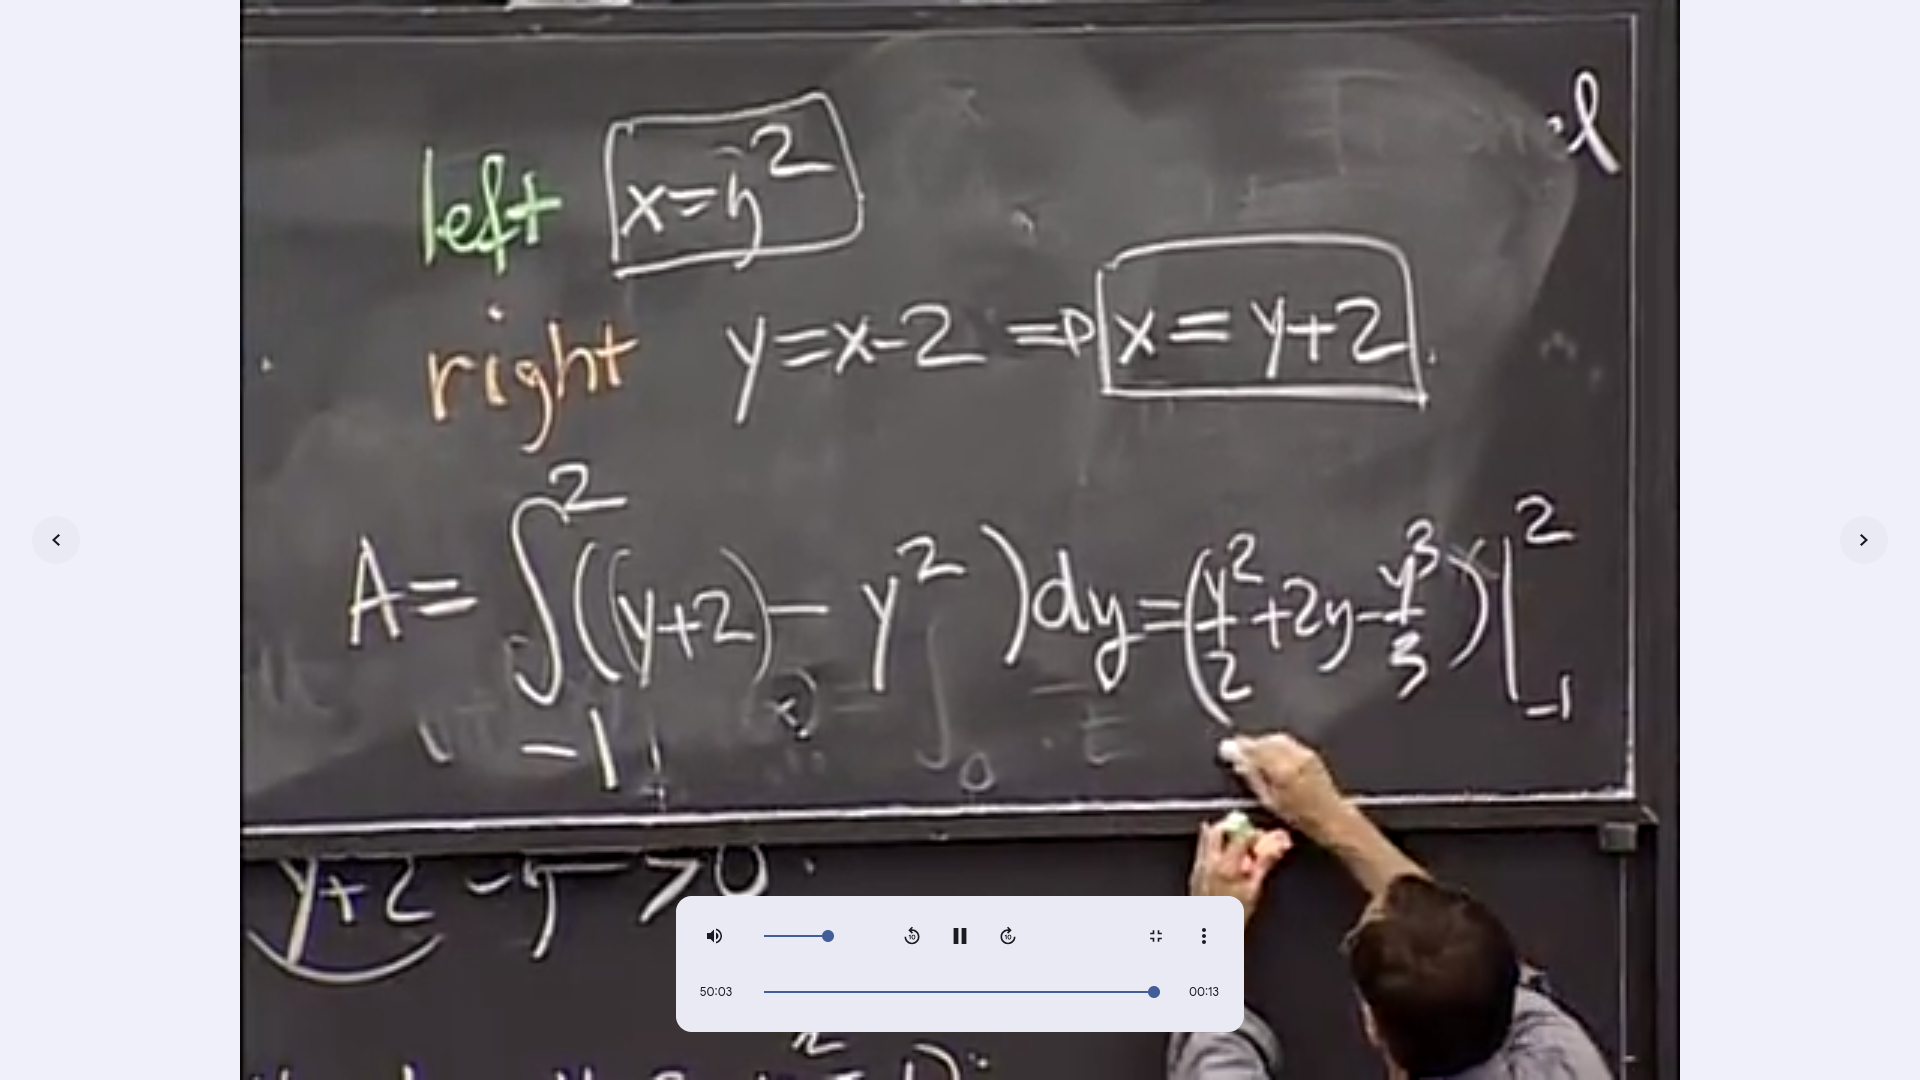 left x=y²
right y=x-2 ⇒ x = y+2.
A = ∫₋₁² ((y+2) - y²) dy = (y²/2 + 2y - y³/3) |₋₁²
y+2 - y² >0.
50:03
00:13